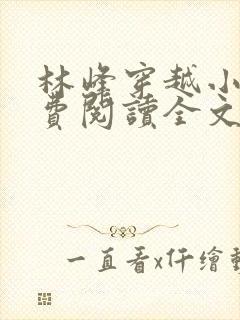 林峰穿越小
費閱讀全文
一直看x仟繪動